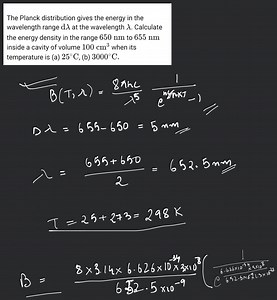 The Planck distribution gives the energy in the
wavelength range dλ at the wavelength λ. Calculate
the energy density in the range 650 nm to 655 nm
inside a cavity of volume 100 cm³ when its
temperature is (a) 25°C, (b) 3000°C.
B(T,λ) = 8πhc/λ⁵ 1/(e^(hc/λKT) - 1)
Dλ = 655-650 = 5 nm
λ = (655+650)/2 = 652.5 nm
T = 25+273 = 298 K
B = 8×3.14×6.626×10⁻³⁴×3×10⁸